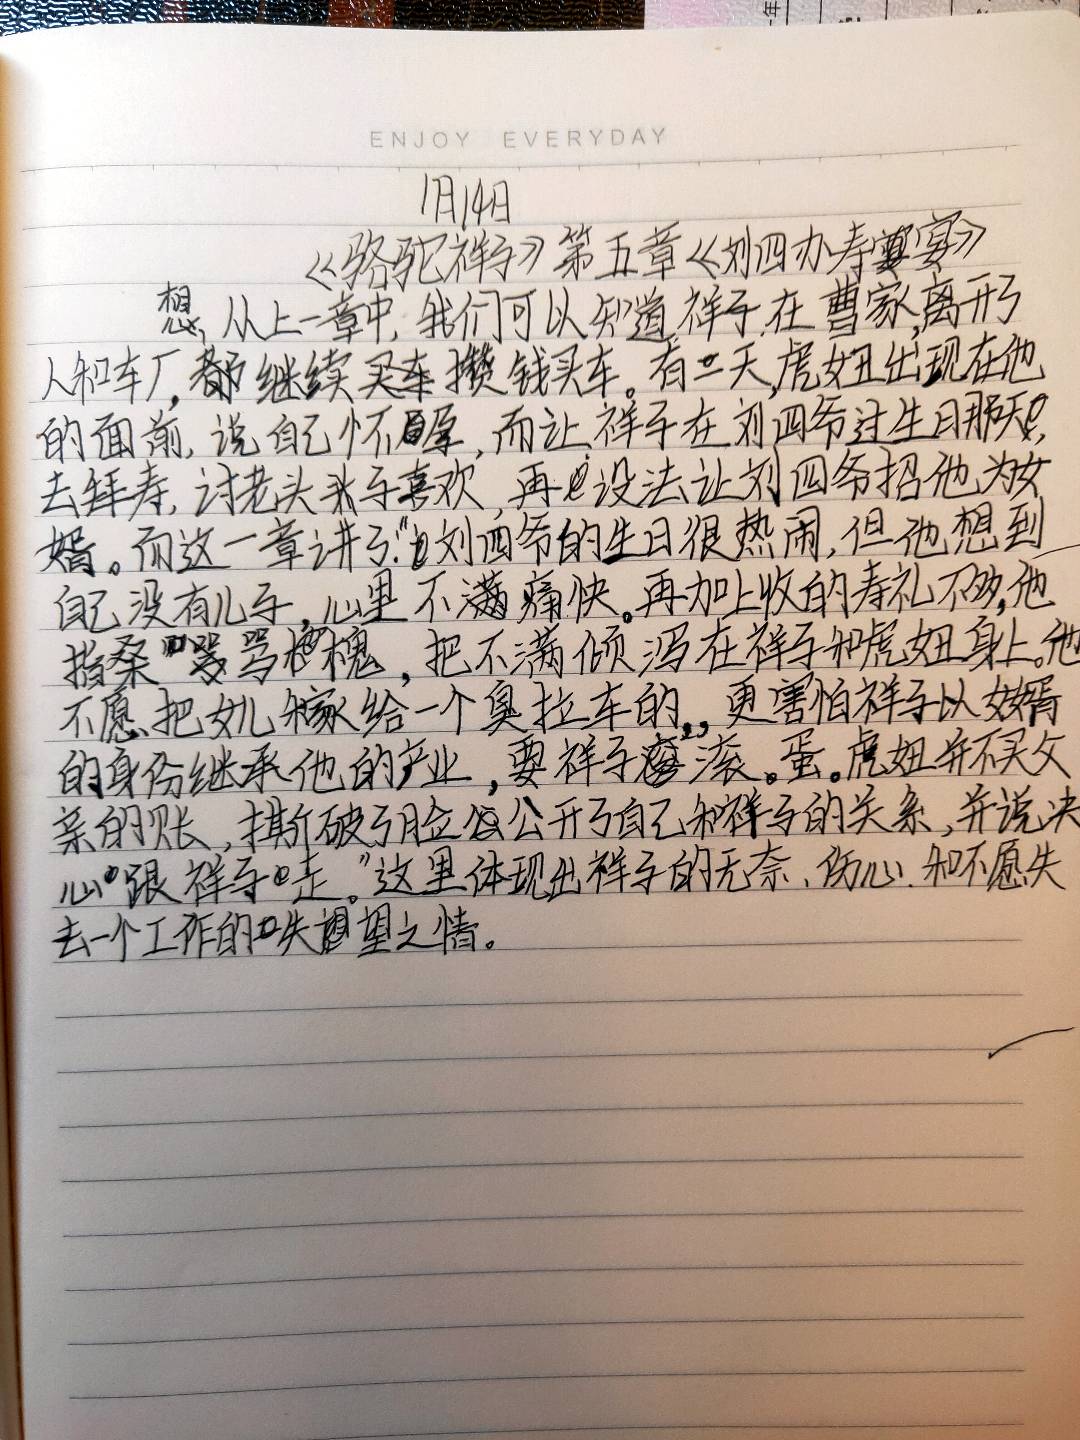 ENJOY EVERYDAY
1月14日
《骆驼祥子》第五章《刘四办寿宴》
想,从上一章中,我们可以知道,祥子在曹家,离开了
人和车厂,都继续买车攒钱买车。有一天,虎妞出现在他
的面前,说自己怀孕,而让祥子在刘四爷过生日那天,
去拜寿,讨老头子喜欢,再设法让刘四爷招他为女
婿。而这一章讲了:“刘四爷的生日很热闹,但他想到
自己没有儿子,心里不满痛快。再加上收的寿礼不多,他
指桑骂槐,把不满倾泻在祥子和虎妞身上。他
不愿把女儿嫁给一个臭拉车的,,更害怕祥子以女婿
的身份继承他的产业,要祥子滚。蛋。虎妞并不买父
亲的账,撕破了脸公开了自己和祥子的关系,并说决
心跟祥子走。”这里体现出祥子的无奈、伤心、和不愿失
去一个工作的失望之情。